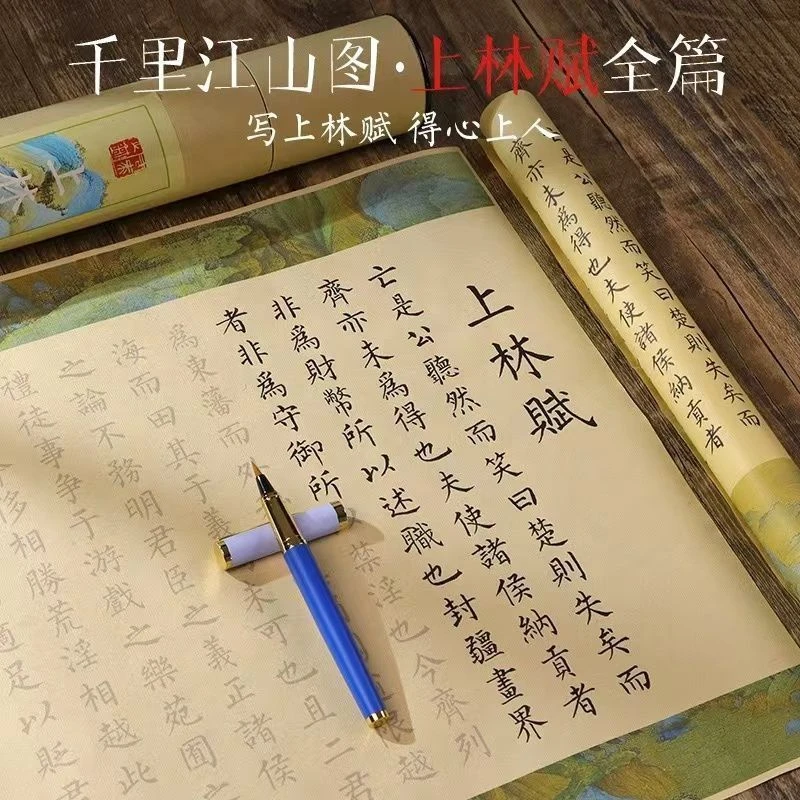 千里江山图·上林赋全篇
写上林赋 得心上人
上林賦
亡是公聽然而笑曰楚則失矣而
齊亦未為得也夫使諸侯納貢者
非為財幣所以述職也封疆畫界
者非為守御所禁淫也今齊列
為東藩而外限越
海而田其于義未可也且二
之論不務明君臣之義正諸侯
禮徒事爭于游戲之樂苑囿
侈相勝荒淫相越此
適足以貶君
是公聽然而笑曰楚則失矣而
齊亦未為得也夫使諸侯納貢者